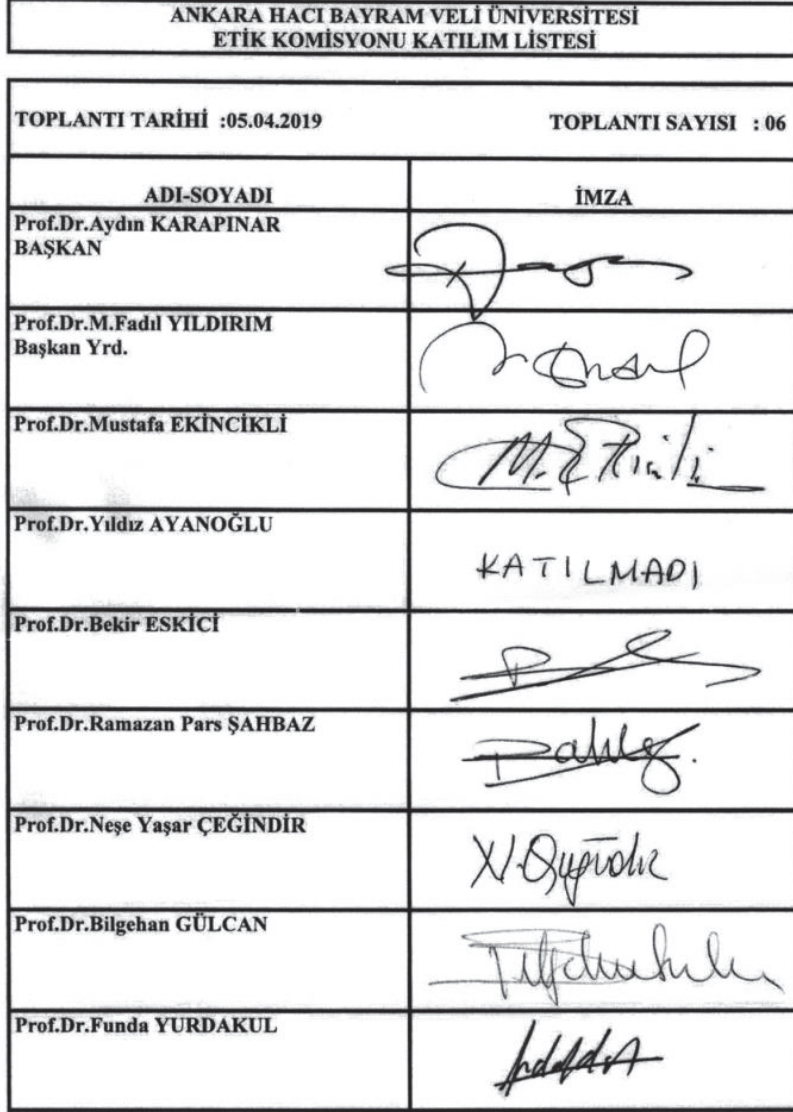 ANKARA HACI BAYRAM VELİ ÜNİVERSİTESİ
ETİK KOMİSYONU KATILIM LİSTESİ
TOPLANTI TARİHİ :05.04.2019 TOPLANTI SAYISI : 06
ADI-SOYADI İMZA
Prof.Dr.Aydın KARAPINAR
BAŞKAN
Prof.Dr.M.Fadıl YILDIRIM
Başkan Yrd.
Prof.Dr.Mustafa EKİNCİKLİ
Prof.Dr.Yıldız AYANOĞLU
KATILMADI
Prof.Dr.Bekir ESKİCİ
Prof.Dr.Ramazan Pars ŞAHBAZ
Prof.Dr.Neşe Yaşar ÇEĞİNDİR
Prof.Dr.Bilgehan GÜLCAN
Prof.Dr.Funda YURDAKUL